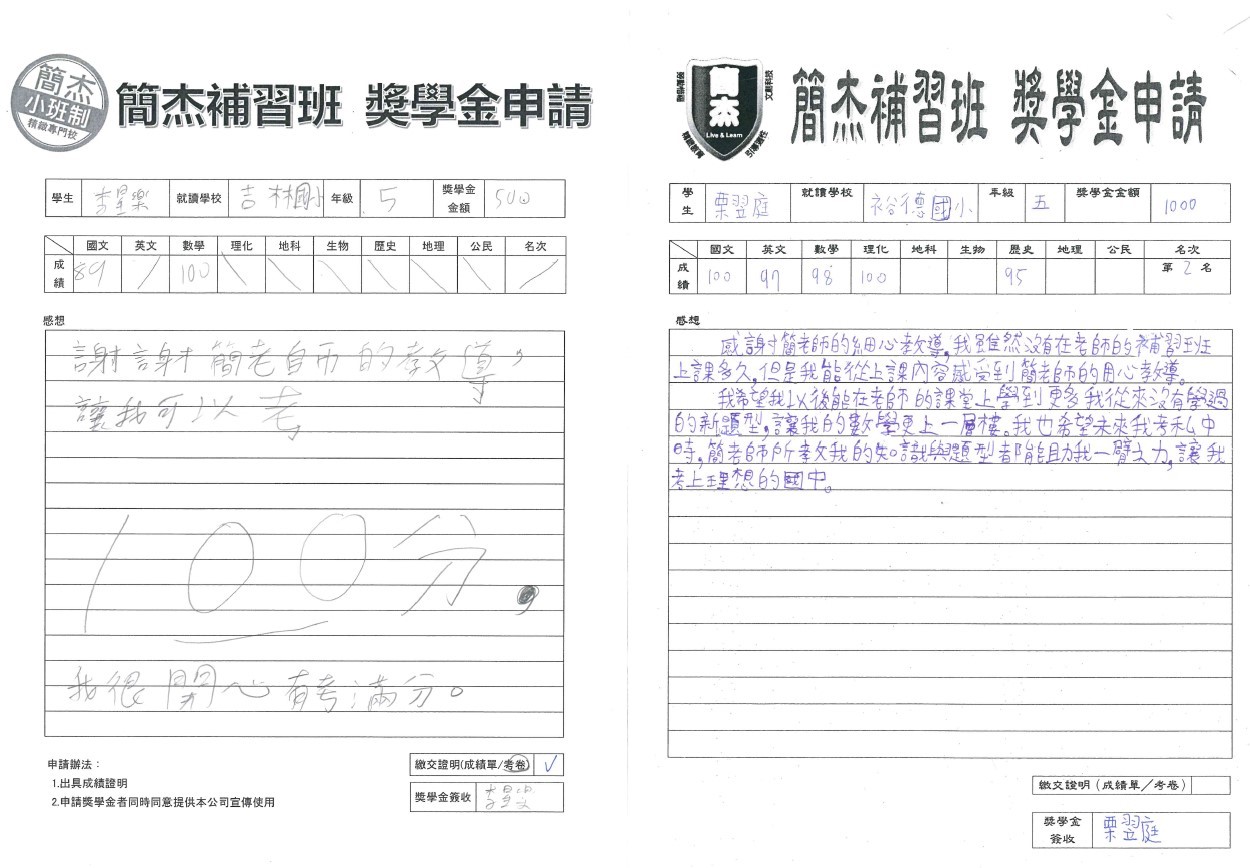 簡杰
小班制
精緻專門校
簡杰補習班 獎學金申請
學生 李星樂 就讀學校 吉林國小 年級 5 獎學金金額 500
國文 英文 數學 理化 地科 生物 歷史 地理 公民 名次
成績 89 / 100 \ \ \ \ \ \ /
感想
謝謝簡老師的教導,
讓我可以考
100分。
我很開心有考滿分。
申請辦法:
1.出具成績證明
2.申請獎學金者同時同意提供本公司宣傳使用
繳交證明(成績單/考卷) ✓
獎學金簽收
簡杰
Live & Learn
精緻教育
引導適性
簡杰補習班 獎學金申請
學生 栗翌庭 就讀學校 裕德國小 年級 五 獎學金金額 1000
國文 英文 數學 理化 地科 生物 歷史 地理 公民 名次
成績 100 97 98 100 95 第2名
感想
感謝簡老師的細心教導,我雖然沒有在老師的補習班
上課多久,但是我能從上課內容感受到簡老師的用心教導。
我希望我以後能在老師的課堂上學到更多我從來沒有學過
的新題型,讓我的數學更上一層樓。我也希望未來我考私中
時,簡老師所教我的知識與題型都能助我一臂之力,讓我
考上理想的國中。
繳交證明(成績單/考卷)
獎學金簽收 栗翌庭